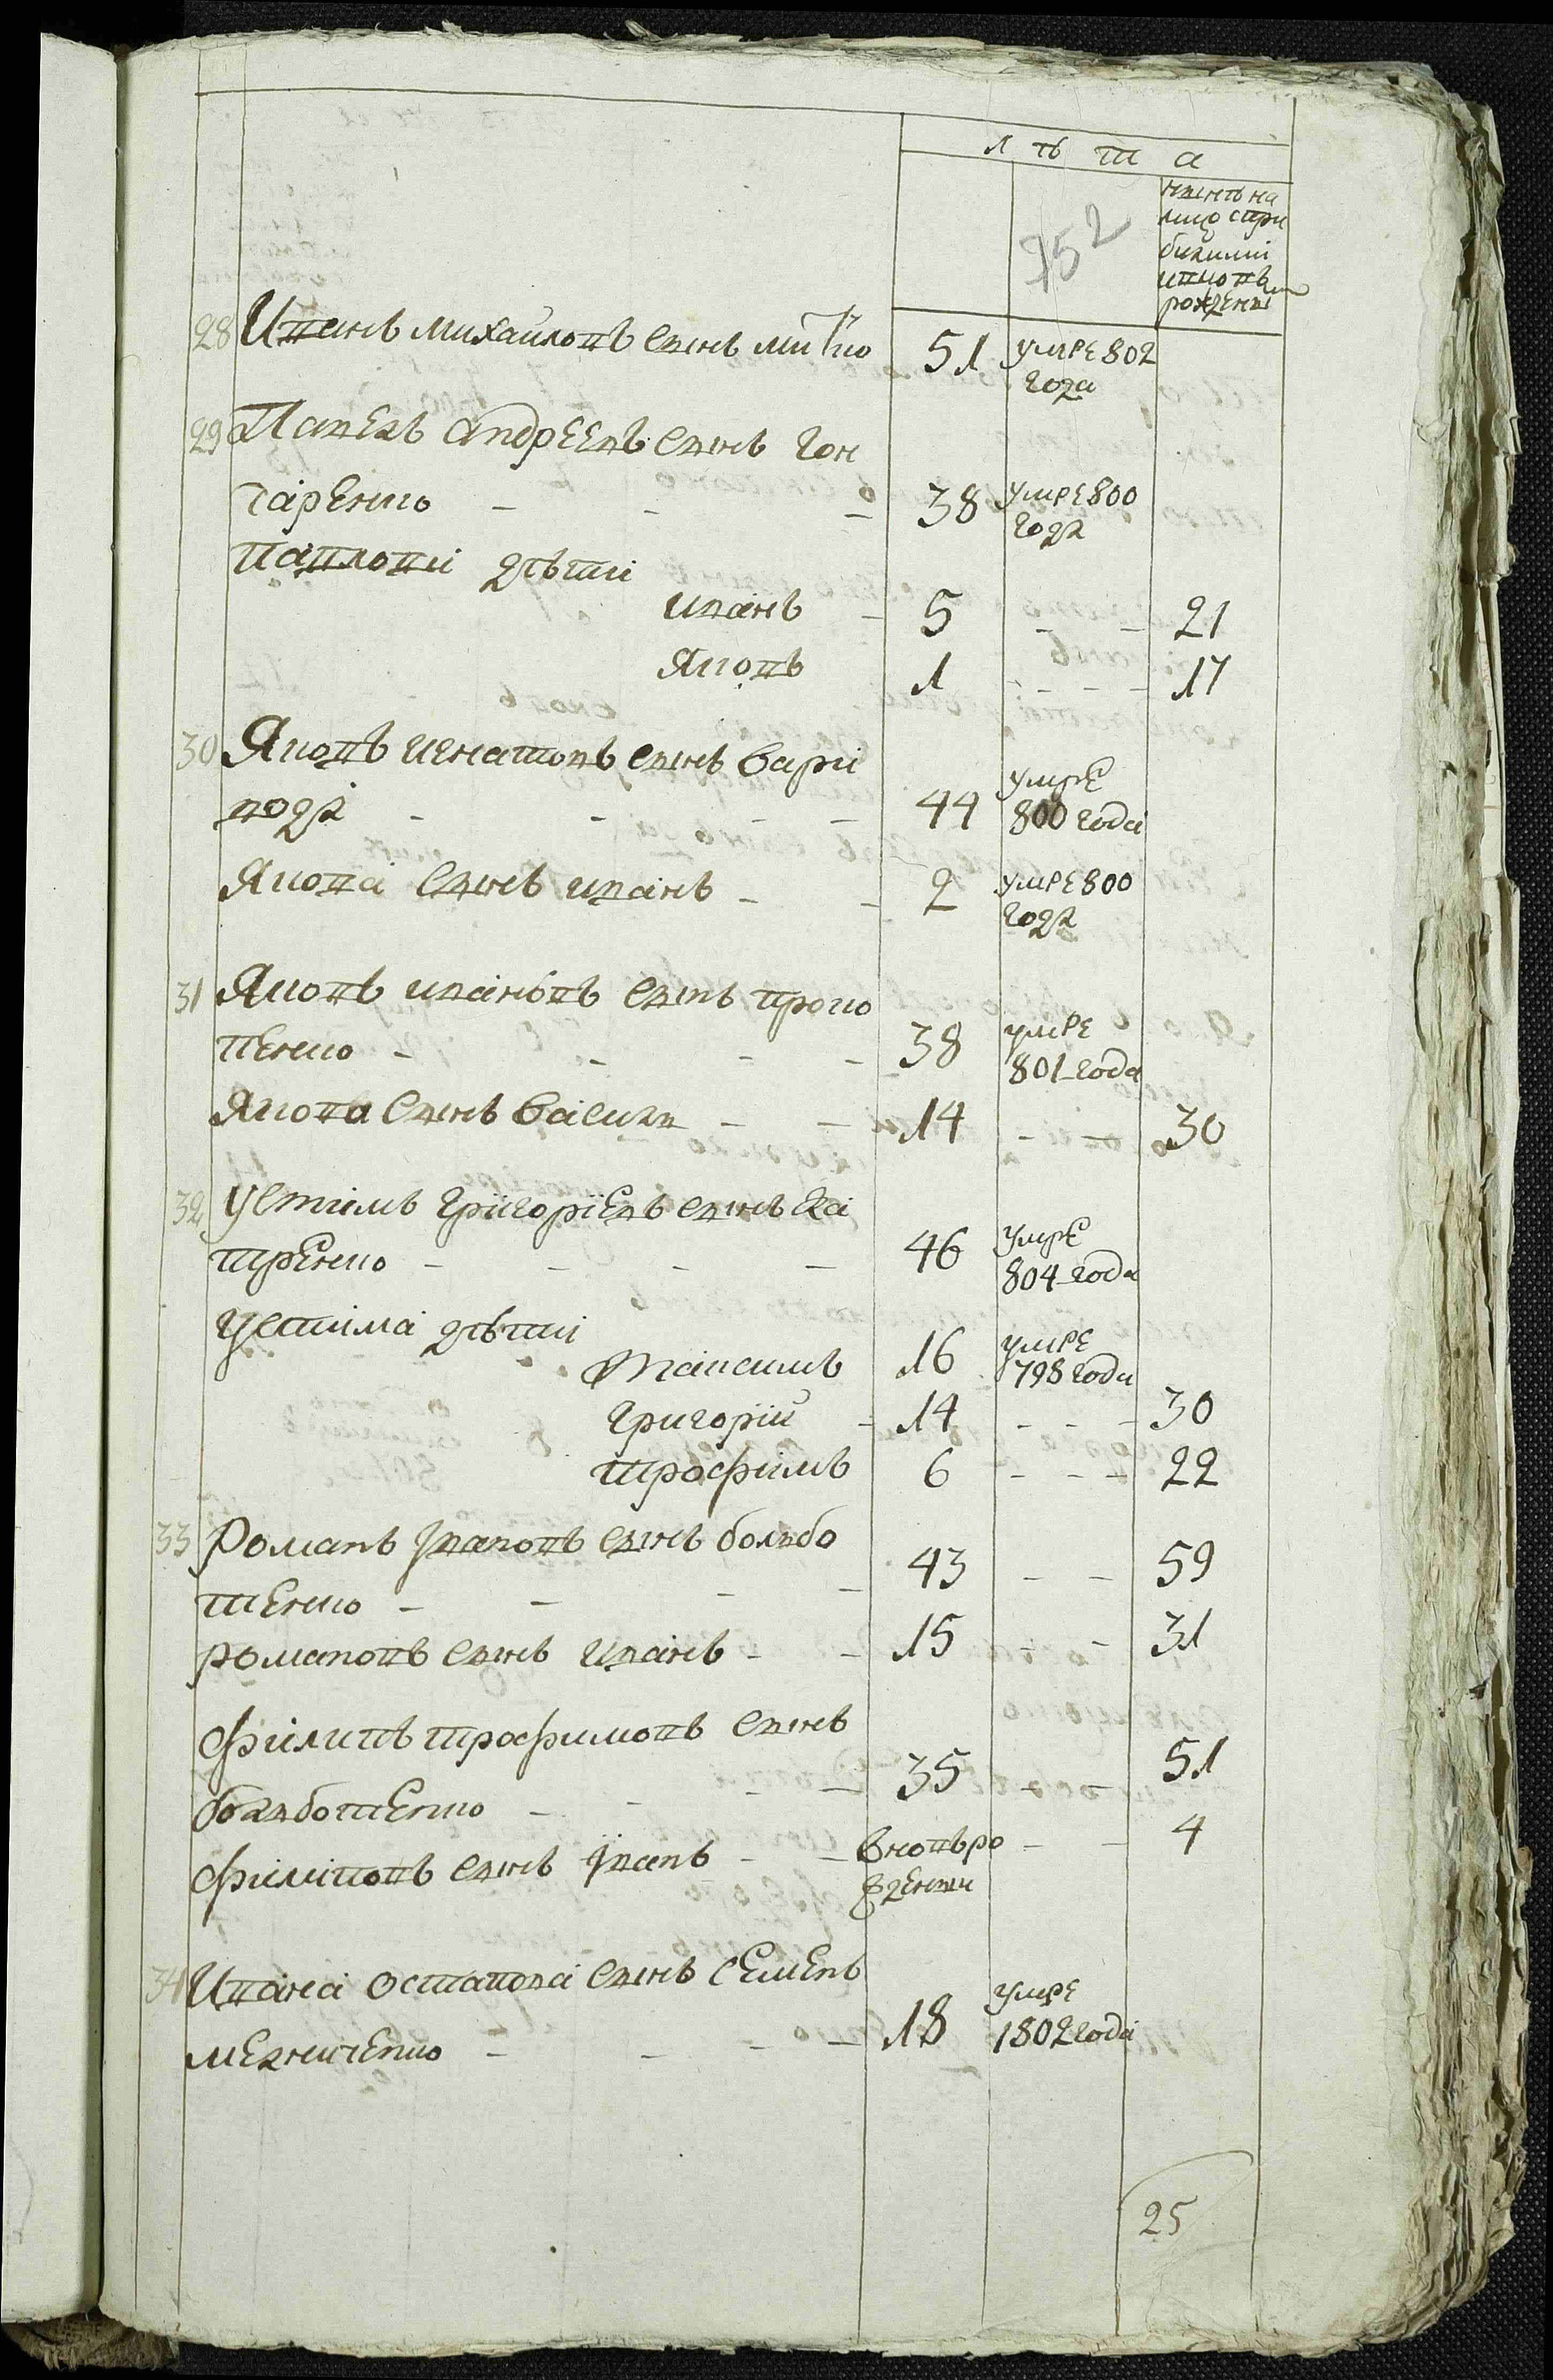 лѣта
752
нынѣ на
лицо с при
былими
и новь
рожденны
28 Иванъ Михайловъ сынъ 51 умре 802
года
29 Павелъ Андреевъ сынъ Гон
таренко - - - 38 умре 800
года
Павлови дѣти
Иванъ - 5 - - 21
Яковъ 1 - - - 17
30 Яковъ Игнатовъ сынъ Вари
вода - - - - 44 умре
800 года
Якова сынъ Иванъ - - 2 умре 800
года
31 Яковъ Ивановъ сынъ Проко
пенко - - - - 38 умре
801 года
Якова сынъ Василь - - 14 - - 30
32 Устимъ Григоріевъ сынъ
тренко - - - - 46 умре
804 года
Устима дѣти
Максимъ 16 умре
798 года
Григорій - 14 - - - 30
Трофимъ 6 - - - 22
33 Романъ Івановъ сынъ Болбо
тенко - - - - 43 - - 59
Романовъ сынъ Иванъ - - 15 - - 31
Филипъ Трофимовъ сынъ
Болботенко - - - - 35 - - 51
Филиповъ сынъ Іванъ - - вновь ро
жденни - - 4
34 Ивана Остапова сынъ Семенъ
Мелниченко - - - - 18 умре
1802 года
25